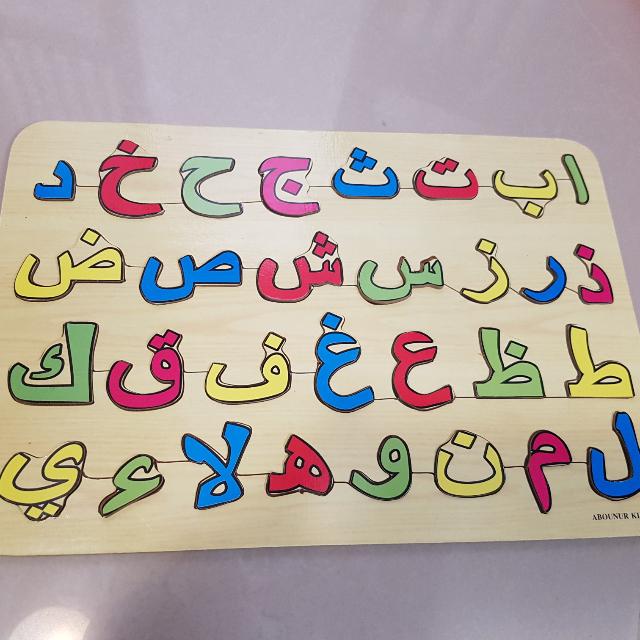 ا ب ت ث ج ح خ د
ذ ر ز س ش ص ض
ط ظ ع غ ف ق ك
ل م ن و ه لا ء ي
ABOUNUR KI